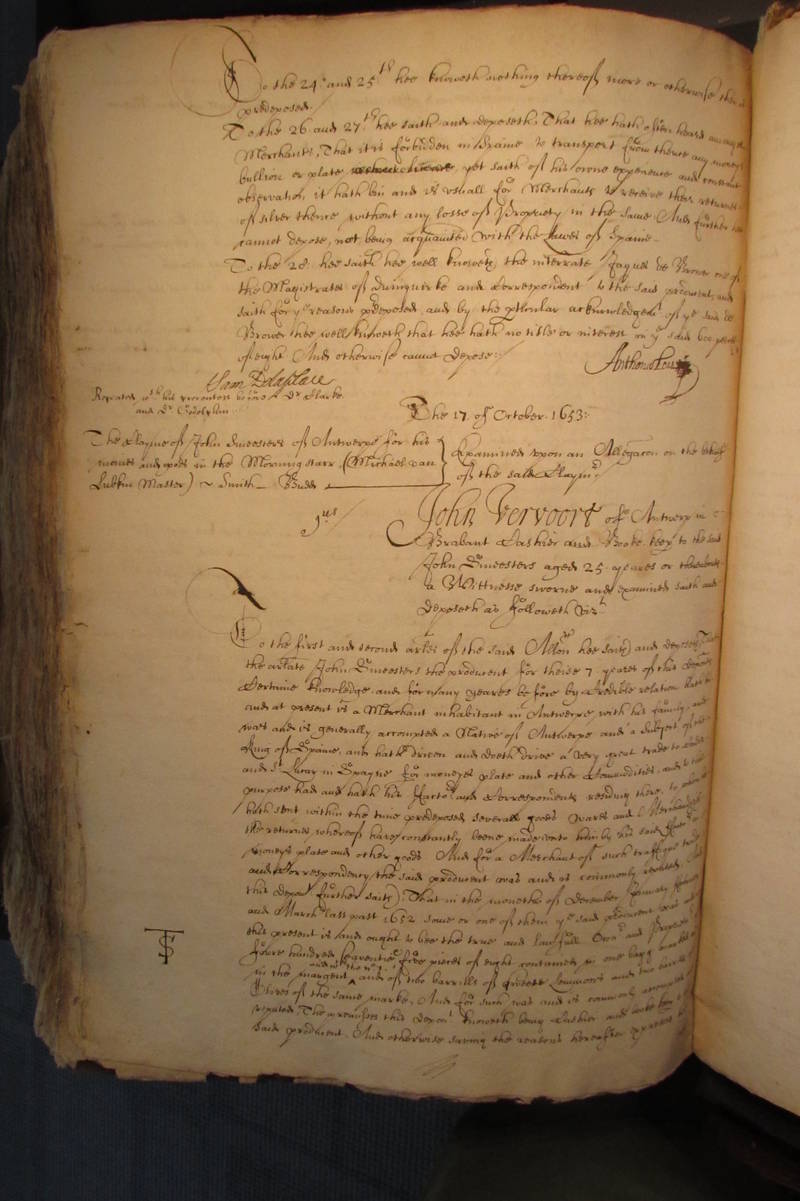 To the 24th and 25th hee knoweth nothing thereof more or otherwise then
predeposed.
To the 26 and 27th hee saith and deposeth, That hee hath often heard amongst
Merchants, That it is forbidden in Spaine to transport from thence any moneys
bullion or plate, yet saith of his owne experience and constant
observation it hath bin and is usuall for Merchants to receive their returnes
of silver thence without any losse of Propriety in the same And further
cannot depose, not being acquainted with the Lawes of Spaine
To the 28. hee saith hee well knoweth the interrate Jaques de Brower one of
the Magistrates of Dunquirke and Correspondent to the said producent, and
saith for ye reasons predeposed, and by the acknowledgemt of ye said de
Brower hee well knoweth that hee hath no title or interest in ye said 600 peeces
of eight And otherwise cannot depose
Sam Delaplace
Repeated with his precontest before Dr Clarke
and Dr Godolphin
The 17. of October. 1653:
The Clayme of John Smeesters of Antwerpe for his
monies and goods in the Morning starr, (Michael van
Lubkin Master) Smith Budd
Examined upon an Allegacon on the behalf
of the said Clayme
1us
John Vervoort of Antwerp in
Brabant Cashier and Booke keepr to the said
John Smeesters aged 25 yeares or thereabouts
a Wittnesse sworne and examined saith and
deposeth as followeth vizt
To the first and second arles of the said Allon hee saith and deposeth That
the arlate John Smeesters the producent for theise 7 yeares of this deponts
Certaine knowledge and for many yeares before by Credible relation hath bin
and at present is a Merchant inhabitant in Antwerpe with his family, and
was and is generally accompted a Native of Antwerpe and a Subject of the
King of Spaine, and hath driven and doeth drive a very great trade to
and St Lucar in Spayne for moneyes plate and other Commodities, and to that
purpose had and hath his Factors and Correspondents residing there, to whom hee
hath sent within the time predeposed severall goods wares and Merchandizes
the returnes whereof have constantly beene made unto him by his said Factors in
moneys plate and other goods And for a Merchant of such traffique trade
and Correspondency the said producent was and is commonly reputed. And
this depont further saith, That in the moneths of December January February
and March last past 1652 some or one of them ye said producent was and
this present is and ought to bee the true and lawfull Ownr and Proprietor of
foure hundred seaventie five pieces of eight contained in one bagg marked as
in the margent and of two barrills of Lemmons and two barrills of
Olives of the same marke, And for such was and is commonly accompted and
reputed, The premisses this depont knoweth being Cashier and booke keeper to the
said producent, And otherwise saving the reasons hereafter expressed